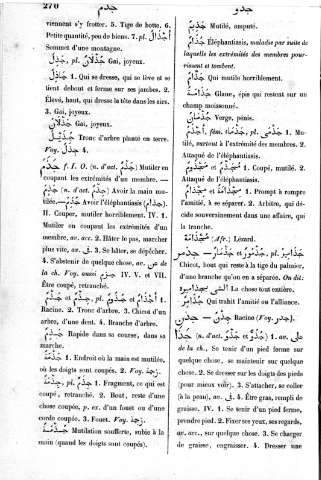 270
جذم
جذو
viennent s'y frotter. 5. Tige de botte. 6.
Petite quantité, peu de biens. 7. pl. أَجْذَالٌ
Sommet d'une montagne.
جَذِلٌ, pl. جُذْلَانٌ Gai, joyeux.
جَاذِلٌ 1. Qui se dresse, qui se lève et se
tient debout et ferme sur ses jambes. 2.
Élevé, haut, qui dresse la tête dans les airs.
3. Gai, joyeux.
جَذْلَانُ Gai, joyeux.
Tronc d'arbre planté en terre.
Voy. جِذْلٌ 4.
جَذَمَ f. I. O. (n. d'act. جَذْمٌ) Mutiler en
coupant les extrémités d'un membre. —
جَذِمَ (n. d'act. جَذَمٌ) Avoir la main mu-
tilée. — جُذِمَ Avoir l'éléphantiasis (جُذَامٌ).
II. Couper, mutiler horriblement. IV. 1.
Mutiler en coupant les extrémités d'un
membre, av. acc. 2. Hâter le pas, marcher
plus vite, av. فى. 3. Se hâter, se dépêcher.
4. S'abstenir de quelque chose, av. عن de
la ch. Voy. aussi جزم IV. V. et VII.
Être coupé, retranché.
جِذْمٌ et جَذْمٌ, pl. جُذُومٌ et أَجْذَامٌ 1.
Racine. 2. Tronc d'arbre. 3. Chicot d'un
arbre, d'une dent. 4. Branche d'arbre.
جَذِمٌ Rapide dans sa course, dans sa
marche.
جَذَمَةٌ 1. Endroit où la main est mutilée,
où les doigts sont coupés. 2. Voy.
جِذْمَةٌ, pl. جِذَمٌ 1. Fragment, ce qui est
coupé, retranché. 2. Bout, reste d'une
chose coupée, p. ex. d'un fouet ou d'une
corde coupée. 3. Fouet. Voy.
جُذْمَةٌ Mutilation soufferte, subie à la
main (quand les doigts sont coupés).
جَذِيمٌ Mutilé, amputé.
جُذَامٌ Éléphantiasis, maladie par suite de
laquelle les extrémités des membres pour-
rissent et tombent.
Qui mutile horriblement.
جُذَامَةٌ Glane, épis qui restent sur un
champ moissonné.
Verge, pénis.
أَجْذَمُ, fém. جَذْمَاءُ, pl. جُذْمٌ 1. Mu-
tilé, surtout à l'extrémité des membres. 2.
Attaqué de l'éléphantiasis.
مَجْذُومٌ et مُجَذَّمٌ 1. Coupé, mutilé. 2.
Attaqué de l'éléphantiasis.
مِجْذَامٌ et مِجْذَامَةٌ 1. Prompt à rompre
l'amitié, à se séparer. 2. Arbitre, qui dé-
cide souverainement dans une affaire, qui
la tranche.
(Afr.) Lézard.
جذمر — جِذْمَارٌ et جُذْمُورٌ, pl. جَذَامِيرُ
Chicot, bout qui reste à la tige du palmier,
d'une branche qu'on en a séparée. On dit:
La chose tout entière.
Qui trahit l'amitié ou l'alliance.
Racine (Voy. جدر).
جَذَا (n. d'act. جَذْوٌ et جُذُوٌّ) 1. av. على
de la ch., Se tenir d'un pied ferme sur
quelque chose, se maintenir sur quelque
chose. 2. Se dresser sur les doigts des pieds
(pour mieux voir). 3. S'attacher, se coller
(à la peau), av. فى. 4. Être gras, rempli de
graisse. IV. 1. Se tenir d'un pied ferme,
prendre pied. 2. Fixer ses yeux, ses regards,
av. acc., sur quelque chose. 3. Se charger
de graisse, engraisser. 4. Dresser une